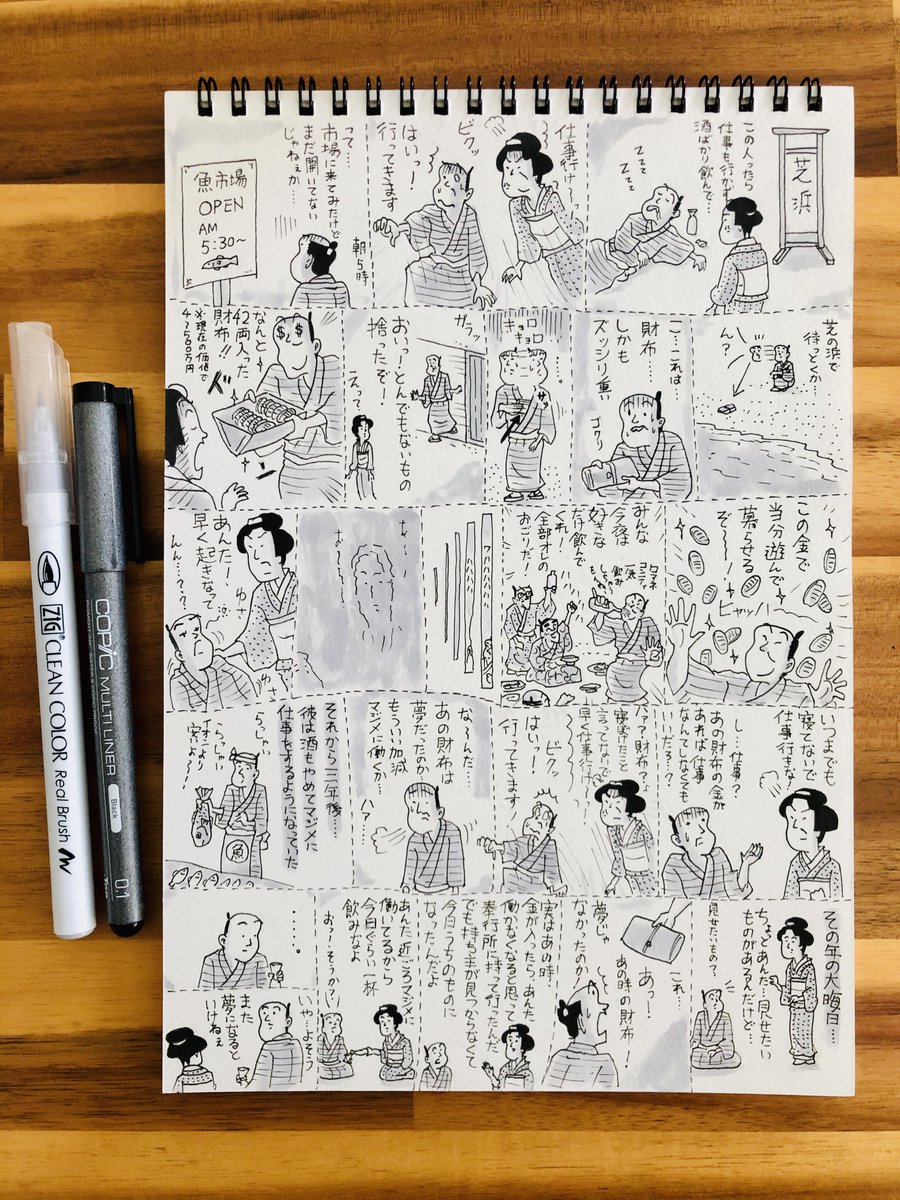 芝浜
この人ったら
仕事も行かず
酒ばかり飲んで…
zzz
zzz
仕事行け〜っ
ビクッ
はいっ！
行ってきます
って…
市場に来てみたけど
まだ開いてない
じゃねぇか…
朝5時
魚市場
OPEN
AM
5:30〜
芝の浜で
待っとくか…
ん？
こ…これは
財布…
しかも
ズッシリ重い
ゴクッ
…。
キョロ
キョロ
サッ
ガラッ
おいっーとんでもないもの
捨ったぞ！
えっ？
なんと
42両入った
財布!!
※現在の価値で
4〜500万円
この金で
当分遊んで
暮らせる
ぞ〜！
ヒャッハー
みんな
今夜は
好きな
だけ飲んで
くれ！
全部オレの
おごりだ！
ワハハハハ
あんた！
早く起きなって
ゆさ
ゆさ
んん…？
いつまでも
寝てないで
仕事行きな！
し…仕事？
あの財布の金が
あれば仕事
なんてしなくても
いいだろ？
はぁ？財布？
寝ぼけたこと
言ってないで
早く仕事行け〜
ビクッ
はいっ！
行ってきます！
な〜んだ…
あの財布は
夢だったのか…
もういい加減
マジメに働くか…
ハァ…
それから三年後…
彼は酒もやめてマジメに
仕事をするようになっていた
らっしゃい
らっしゃい
安いよ〜
魚
その年の大晦日…
ちょっとあんた…見せたい
ものがあるんだけど…
見せたいもの？
これ…
あっ！
あの時の財布！
夢じゃ
なかったのか！
実はあの時
金が入ったら、あんた
働かなくなると思って
奉行所に持って行ったんだ
でも持ち主が見つからなくて
今日うちのものに
なったんだよ
あんた近ごろマジメに
働いてるから
今日ぐらい一杯
飲みなよ
おっ！そうか？
…。
いや…よそう
また
夢になると
いけねぇ
ZIG CLEAN COLOR Real Brush
COPIC MULTI LINER
PIGMENT INK, WATER & COPIC PROOF
Black
0.1